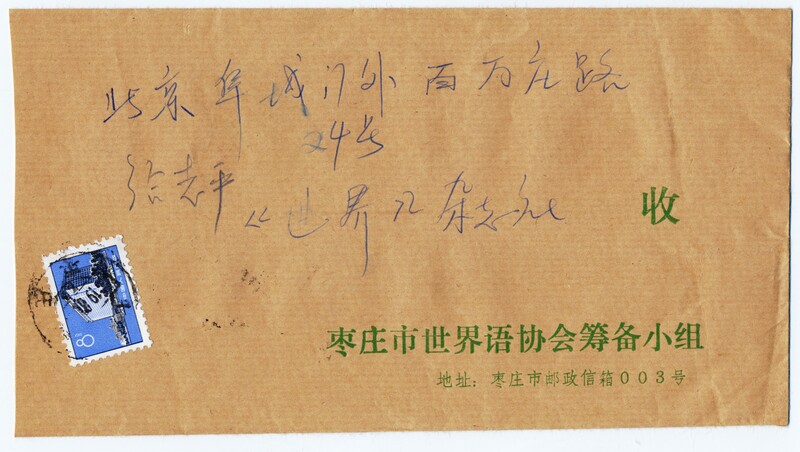 北京阜城门外百万庄路
24号
徐志平
《世界》杂志社
收
枣庄市世界语协会筹备小组
地址：枣庄市邮政信箱003号
8